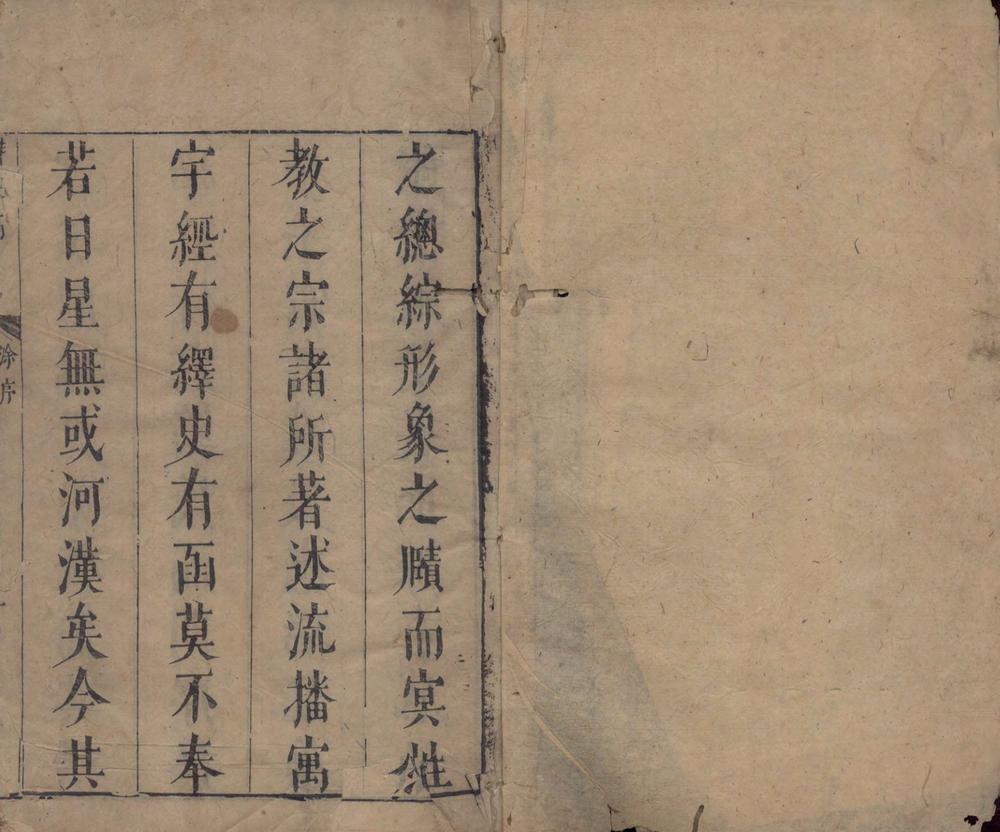 之總綜形象之賾而冥
教之宗諸所著述流播寓
宇經有繹史有函莫不奉
若日星無或河漢矣今其
涂序